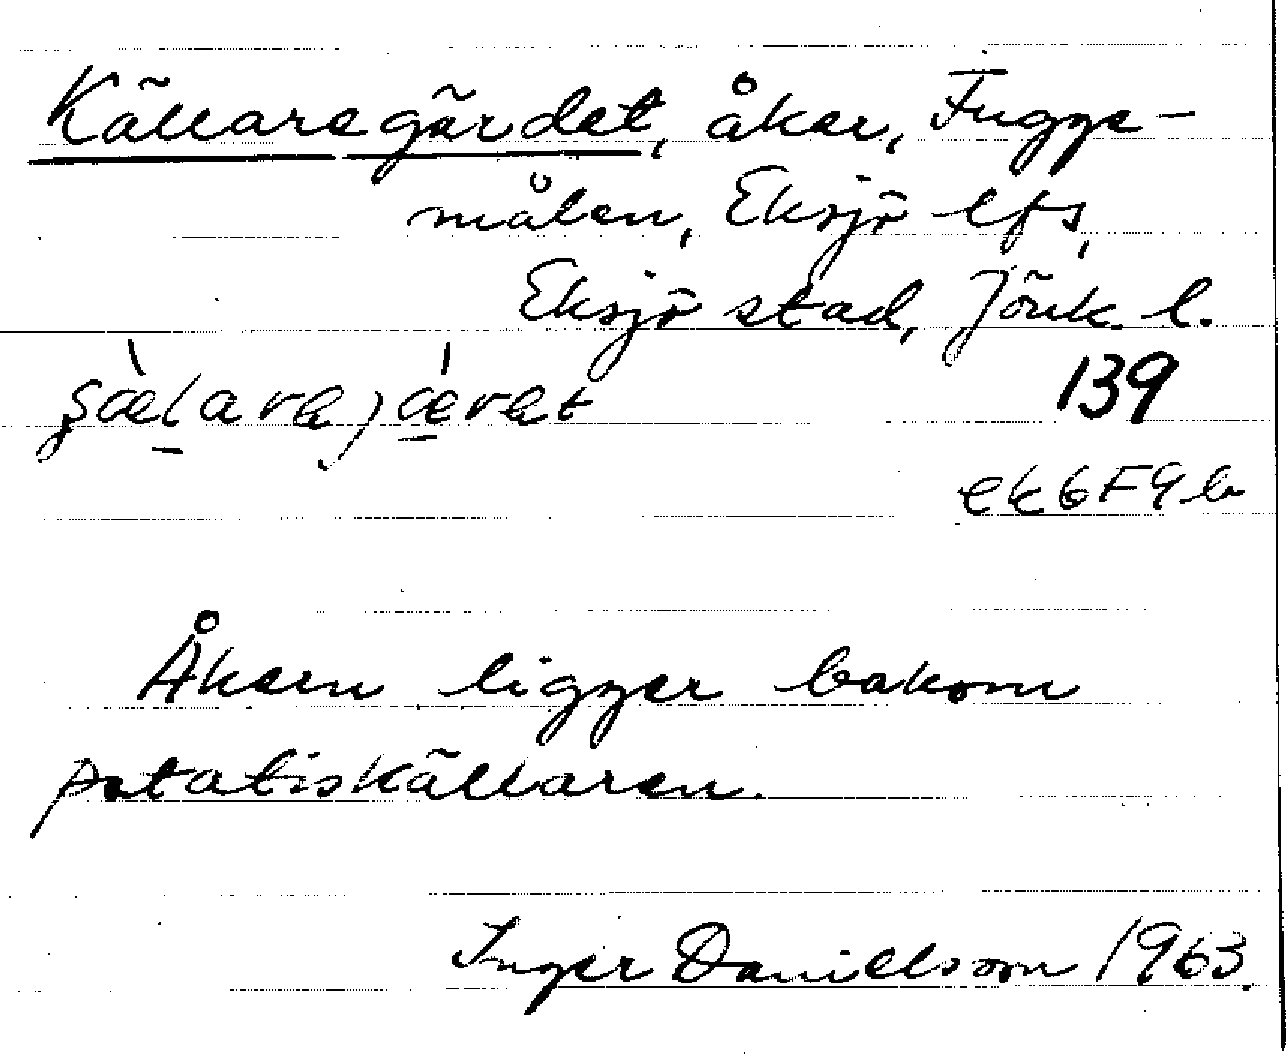 Källaregärdet, åker, Fugge-
målen, Eksjö lfs,
Eksjö stad, Jönk. l.
139
ek 6F9b
Åkern ligger bakom
potatiskällaren.
Inger Danielsson 1963.